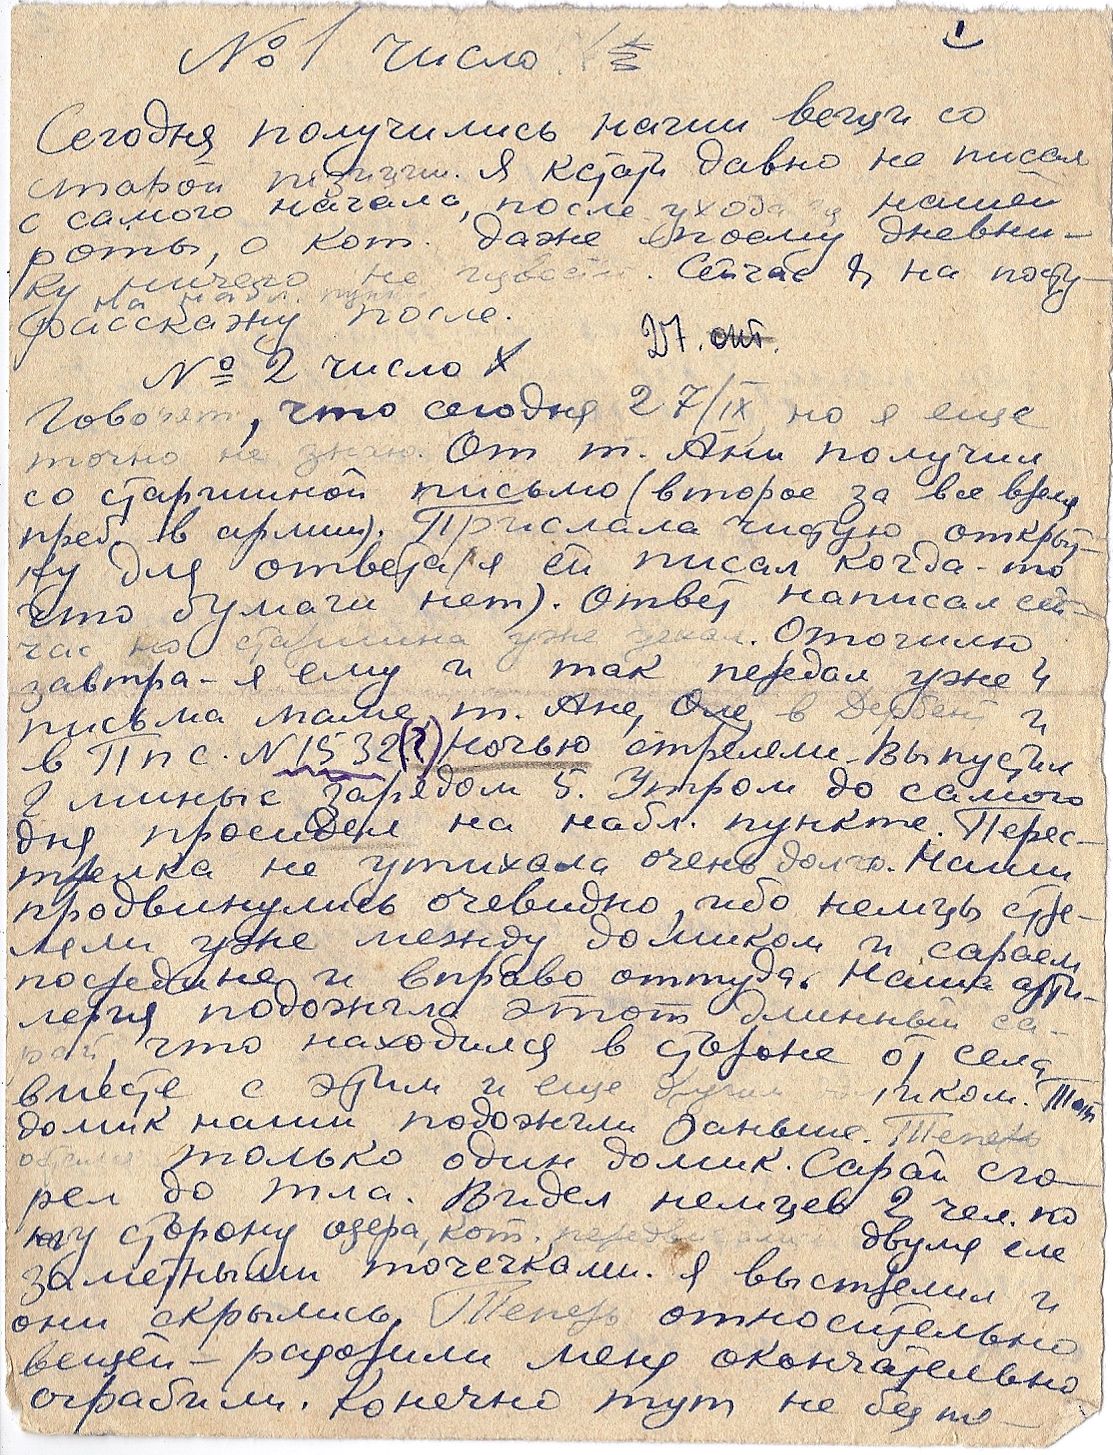 1
№ 1 число
Сегодня получились наши вещи со
старой позиции. Я кстати давно не писал
с самого начала, после ухода нашей
роты, о кот. даже моему дневни-
ку ничего не известно. Сейчас я на посту
на набл. пункте
расскажу после.
27. окт.
№ 2 число X
Говорят, что сегодня 27/IX, но я еще
точно не знаю. От т. Ани получил
со старшиной письмо (второе за все время
преб. в армии). Прислала чистую открыт-
ку для ответа (я ей писал когда-то
что бумаги нет). Ответ написал сей-
час но старшина уже уехал. Отошлю
завтра - я ему и так передал уже 4
письма маме, т. Ане, Оле, в Дербент и
в Ппс. № 1532(?) Ночью стреляли. Выпустил
2 мины с зарядом 5. Утром до самого
дня просидел на набл. пункте. Перес-
трелка не утихала очень долго. Наши
продвинулись очевидно, ибо немцы стре-
ляли уже между домиком и сараем
посредине и вправо оттуда. Наша арти-
лерия подожгла этот длинный са-
рай, что находился в стороне от села
вместе с этим и еще другим домиком. Тот
домик наши подожгли раньше. Теперь
остался только один домик. Сарай сго-
рел до тла. Видел немцев 2 чел. по
ту сторону озера, кот. передвигались двумя еле
заметными точечками. Я выстрелил и
они скрылись. Теперь относительно
вещей - разорили меня окончательно
ограбили. Конечно тут не без то-